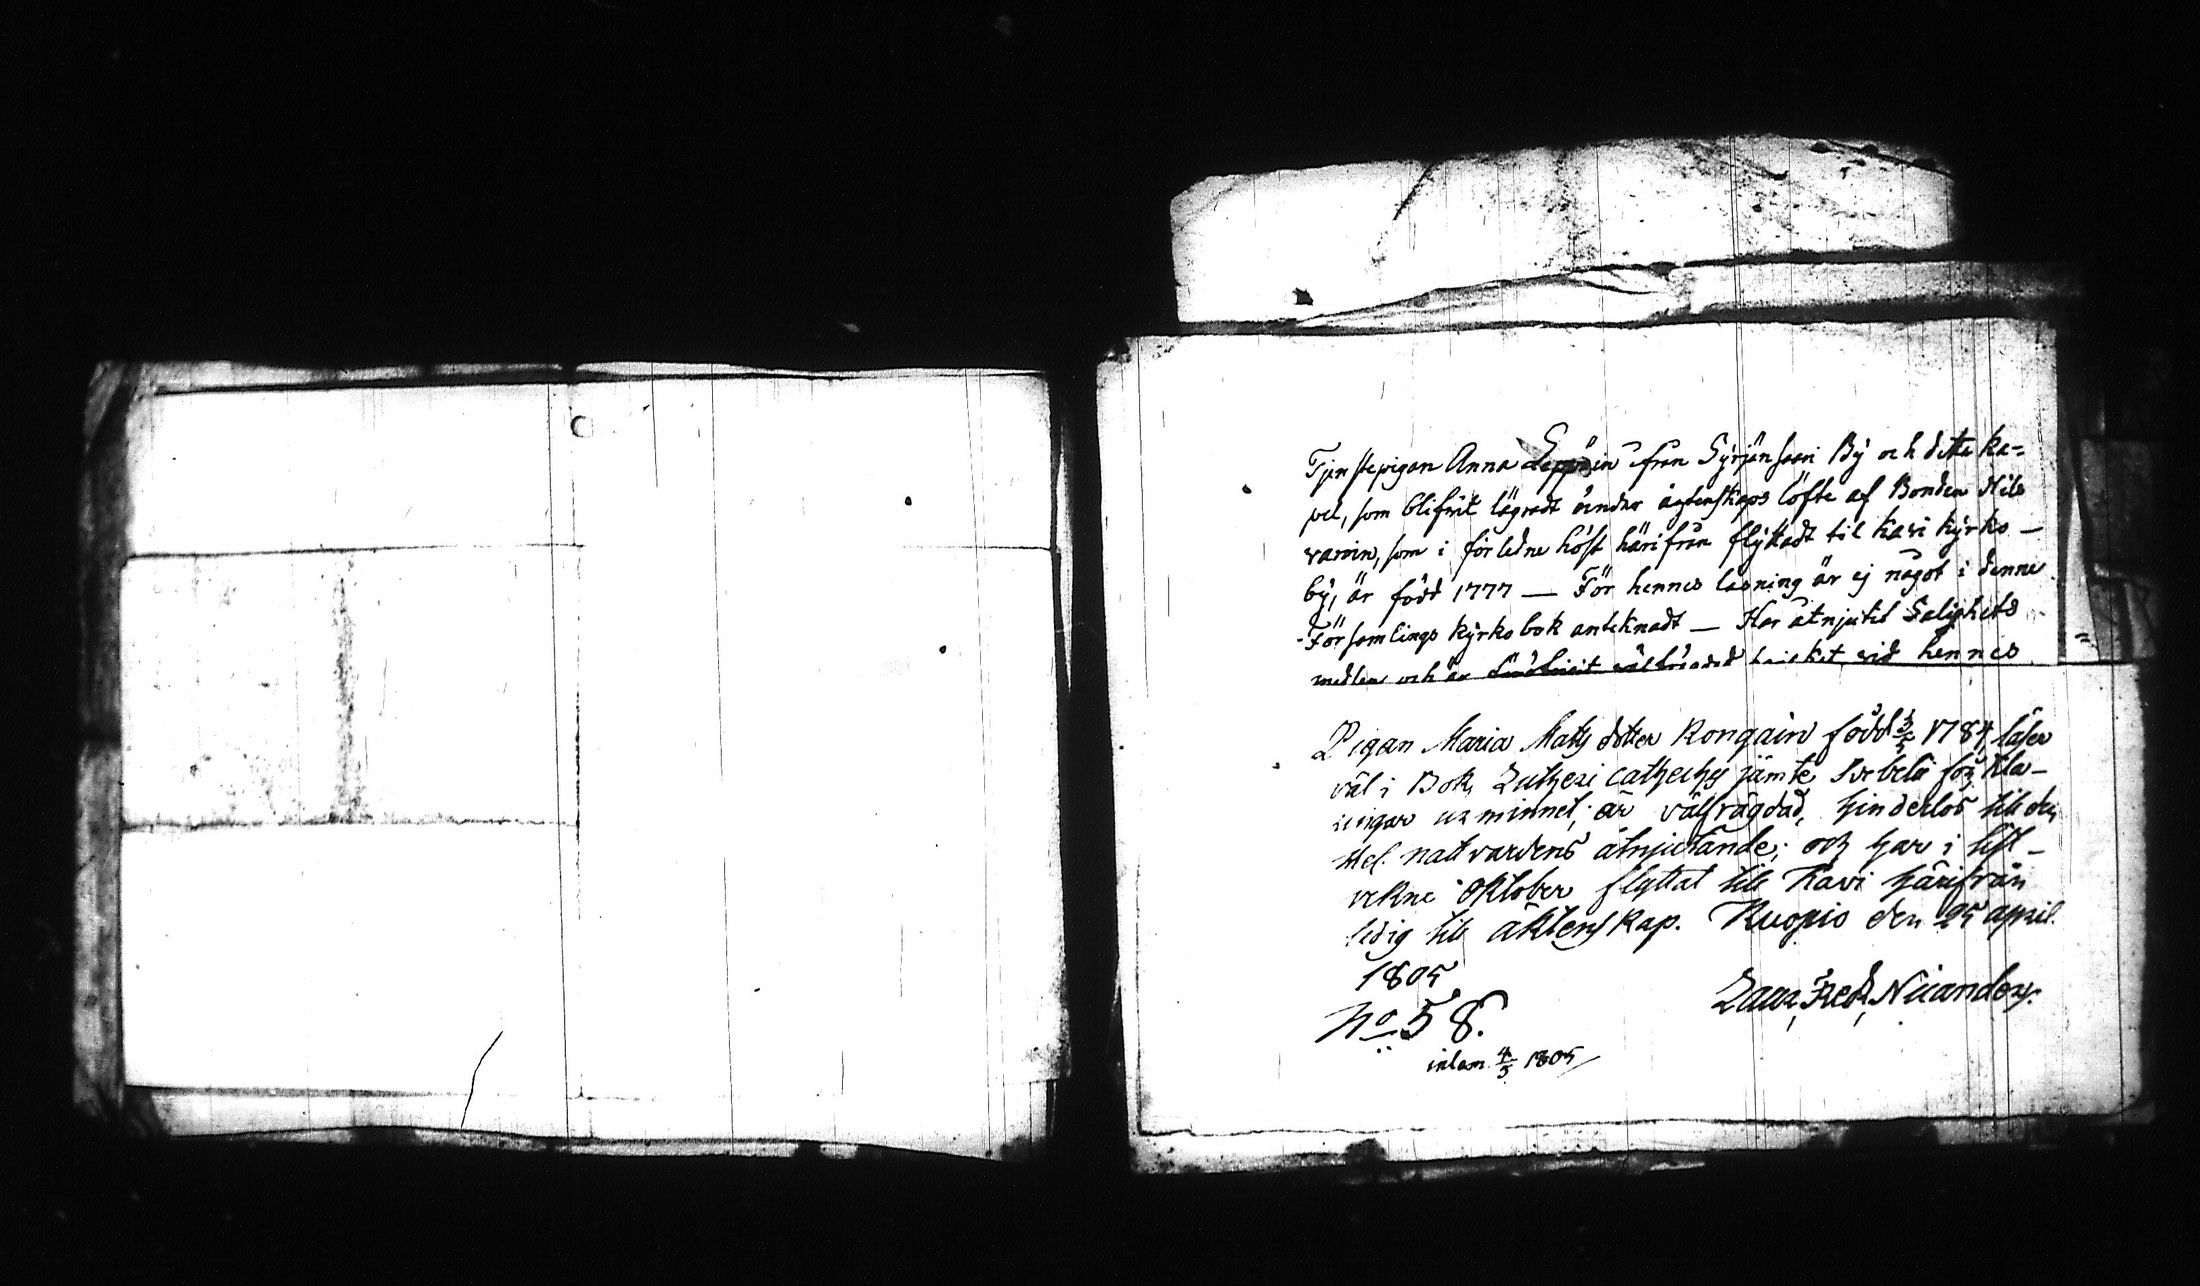 Tjenstepigan Anna Leppäin ifrån Syrjänsaari By och detta ka=
pel, som blifvit lägradt under ägtenskaps löfte af Bonden Nils
som i förledne höst härifrån flyttadt til Kavi kyrko –
by, är född 1777 — För hennes läsning är ej något i denne
Församlings kyrko bok anteknadt — Har åtnjutit Salighets
medlen och är hennes
Pigan Maria Mats dotter Rongain född 3/5 1784, läser
väl i Bok, Lutheri cathechs jämte Svebelii förkla–
ringar ur minnet, är välfrägdad, hinderlös till den
Hel. nattvardens åtnjutande; och har i sist–
vekne oktober flyttat till Kavi härifrån
ledig till äktenskap. Kuopio den 25 april.
1805
Laur, Fred, Nicander,
No 58.
inlem. 4/5 1805